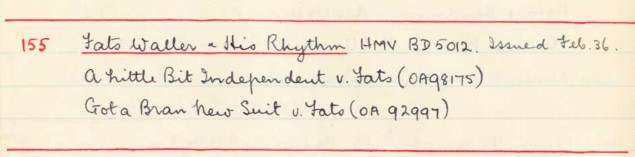 155 Fats Waller & His Rhythm HMV BD 5012. Issued Feb. 36.
A Little Bit Independent v. Fats (OA98175)
Got a Bran New Suit v. Fats (OA 92997)